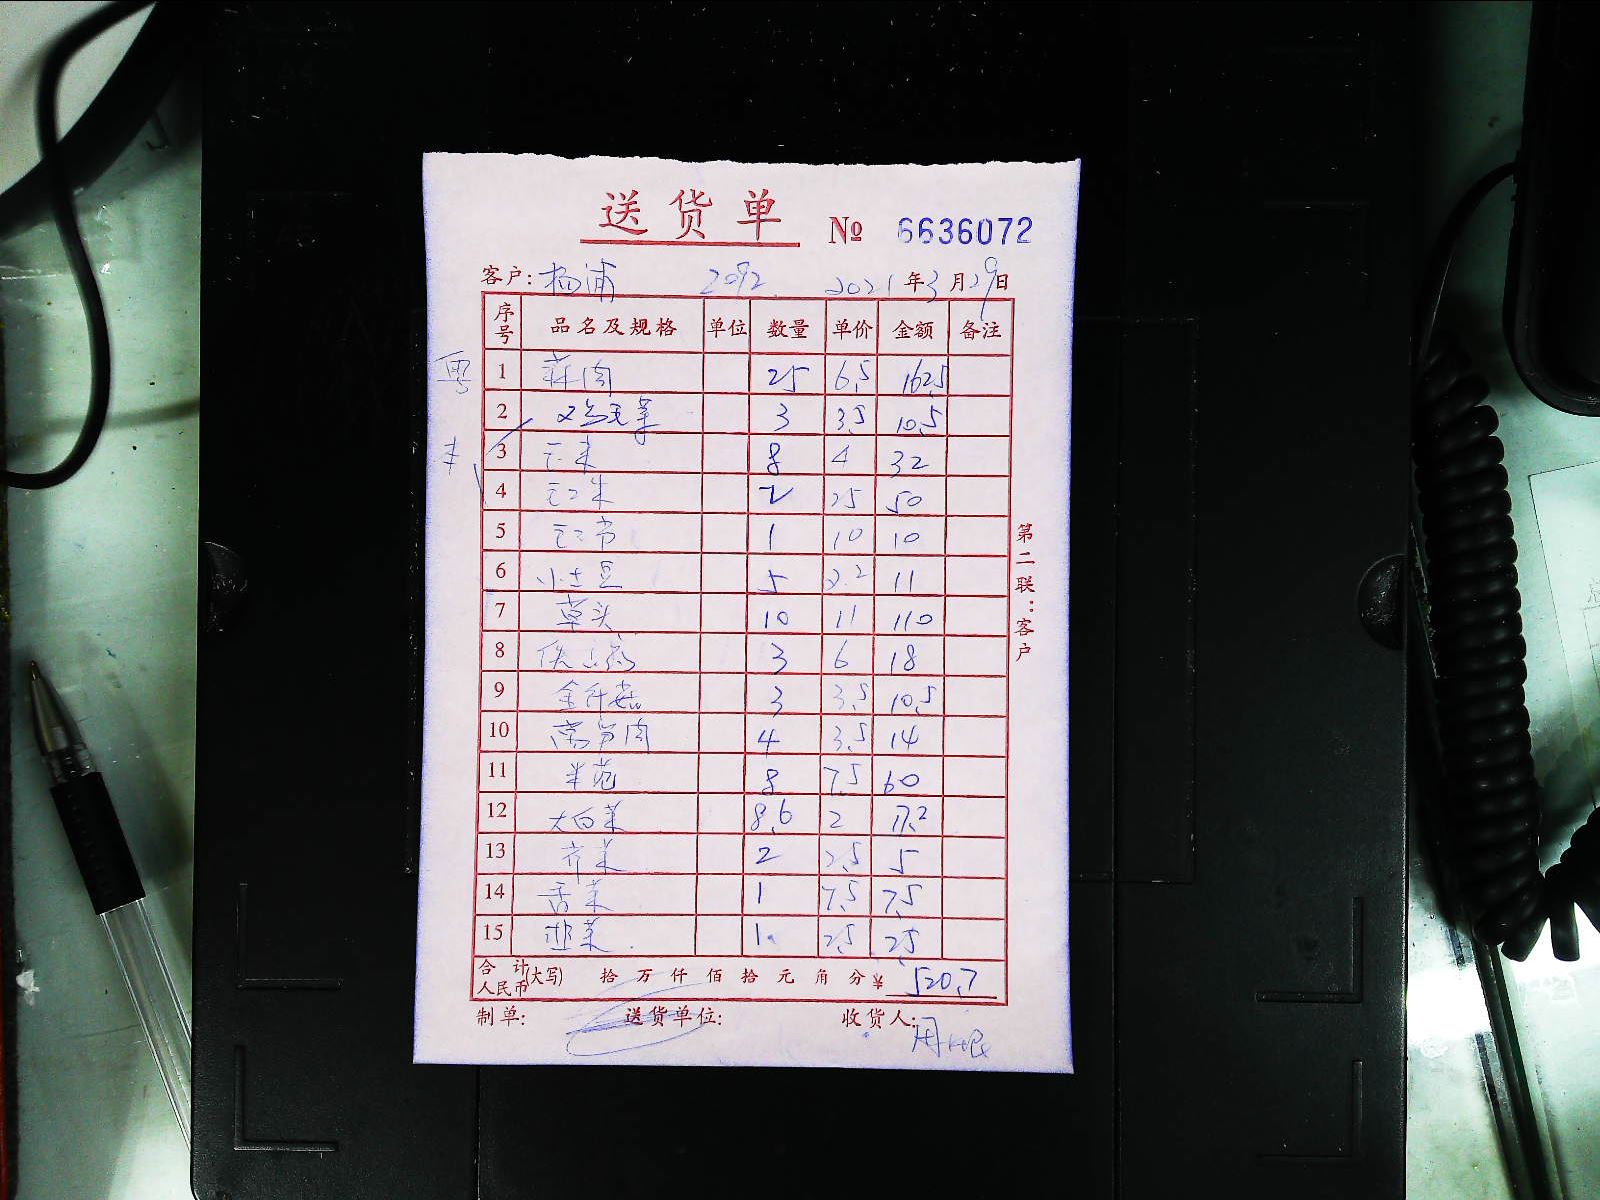 送货单 № 6636072
客户: 杨浦 2092 2021年3月29日
序号 品名及规格 单位 数量 单价 金额 备注
1 蒜肉 25 6.5 162.5
2 3 3.5 10.5
3 8 4 32
4 2 25 50
5 1 10 10
6 小土豆 5 2.2 11
7 草头 10 11 110
8 3 6 18
9 金针菇 3 3.5 10.5
10 莴笋肉 4 3.5 14
11 8 7.5 60
12 大白菜 8.6 2 17.2
13 芹菜 2 2.5 5
14 香菜 1 7.5 7.5
15 韭菜 1 2.5 2.5
合计人民币(大写) 拾 万 仟 佰 拾 元 角 分 ¥ 520.7
制单: 送货单位: 收货人:
第二联:客户